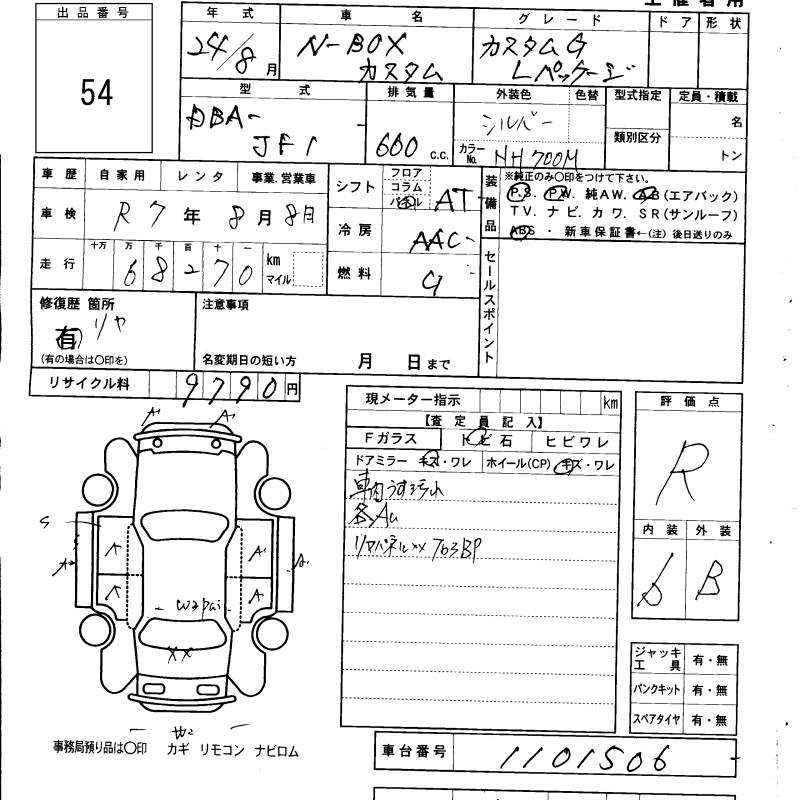 出品番号
54
年式 車名 グレード ドア 形状
24/8月 N-BOX カスタム カスタムG Lパッケージ
型式 排気量 外装色 色替 型式指定 定員・積載
DBA-JF1 660 c.c. シルバー 名
カラーNo. NH700M 類別区分 トン
車歴 自家用 レンタ 事業.営業車
車検 R7年8月8日
走行 十万 万 千 百 十 一
68270 km マイル
シフト フロア コラム パネル AT
冷房 AAC
燃料 G
装備品 ※純正のみ〇印をつけて下さい。
P.S. P.W. 純AW. A.B(エアバック)
TV. ナビ. カワ. SR(サンルーフ)
ABS ・ 新車保証書←(注) 後日送りのみ
セールスポイント
修復歴 箇所
有 リヤ
(有の場合は〇印を)
注意事項
名変期日の短い方 月 日まで
リサイクル料 9790円
現メーター指示 km
【査定員記入】
Fガラス トビ石 ヒビワレ
ドアミラー キズ・ワレ ホイール(CP) キズ・ワレ
車内うす汚れ
各Au
リヤパネルxx 763BP
評価点
R
内装 外装
B
A A
S
A A A A A A
xx
ジャッキ工具 有・無
パンクキット 有・無
スペアタイヤ 有・無
事務局預り品は〇印 カギ リモコン ナビロム
車台番号 1101506